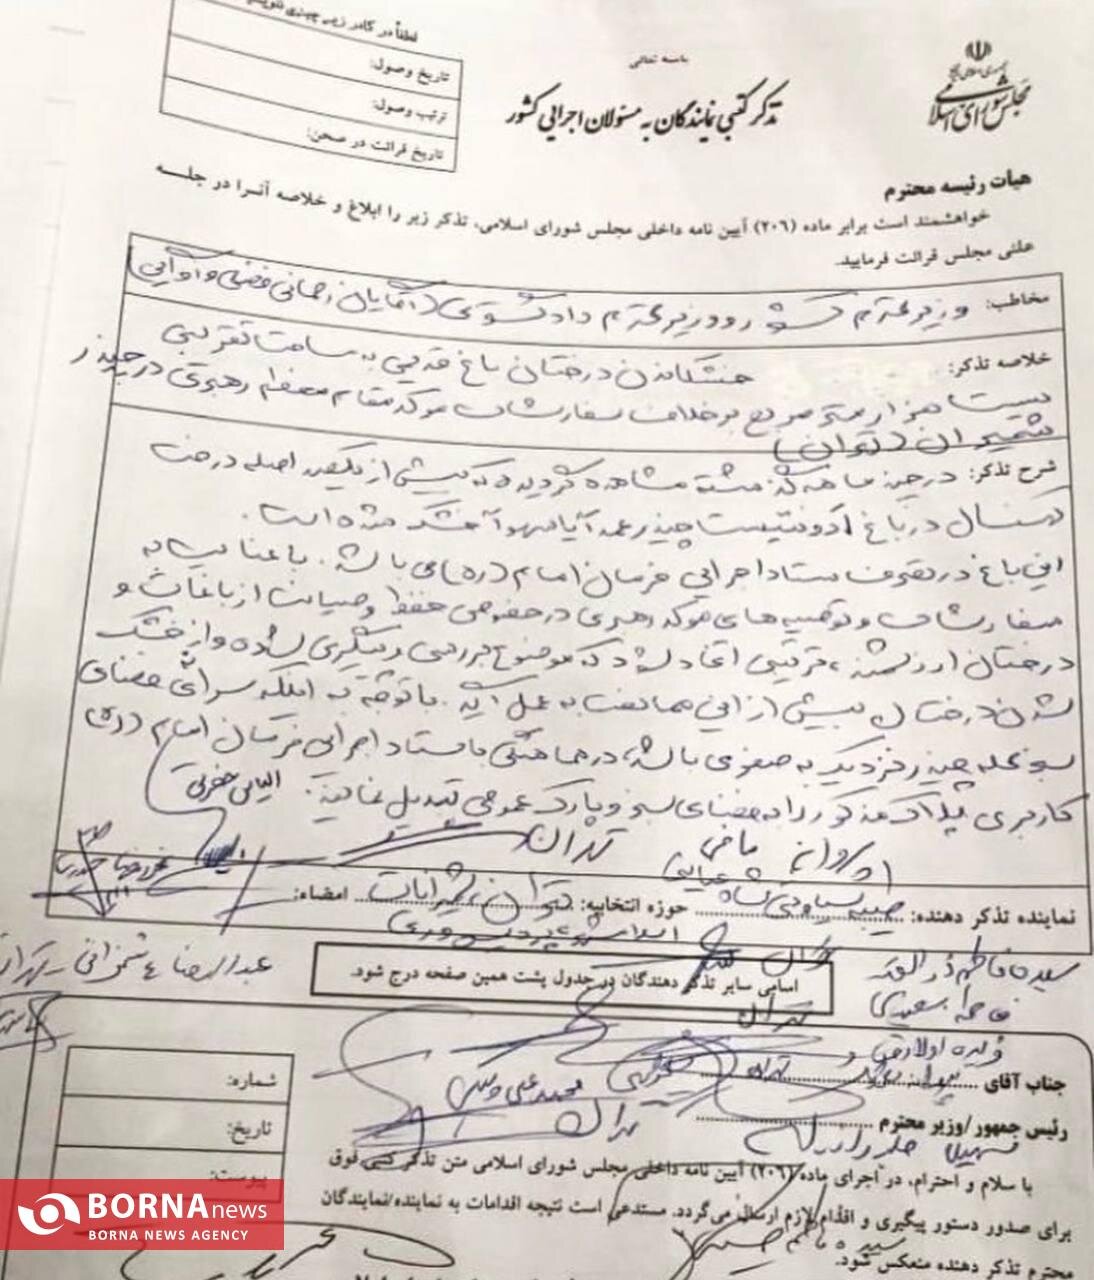 باسمه تعالی
جمهوری اسلامی ایران
مجلس شورای اسلامی
تذکر کتبی نمایندگان به مسئولان اجرایی کشور
لطفاً در کادر زیر چیزی ننویسید
تاریخ وصول:
ترتیب وصول:
تاریخ قرائت در صحن:
هیأت رئیسه محترم
خواهشمند است برابر ماده (۲۰۶) آیین نامه داخلی مجلس شورای اسلامی، تذکر زیر را ابلاغ و خلاصه آنرا در جلسه
علنی مجلس قرائت فرمایید.
مخاطب: وزیر محترم کشور و وزیر محترم دادگستری (آقایان رحمانی فضلی و آوایی)
خلاصه تذکر: خشکاندن درختان باغ قدیمی به مساحت تقریبی
بیست هزار متر مربع بر خلاف سفارشات موکد مقام معظم رهبری در چیذر
شمیران (تهران)
شرح تذکر: در چند ماهه گذشته مشاهده گردیده که بیش از یکصد اصله درخت
کهنسال در باغ ادونتیست چیذر عمداً یا سهواً خشک شده است.
این باغ در تصرف ستاد اجرایی فرمان امام (ره) می باشد. با عنایت به
سفارشات و توصیه های موکد رهبری در خصوص حفظ و صیانت از باغات و
درختان ارزشمند، ترتیبی اتخاذ شود که موضوع بررسی و پیگیری شده و از خشک
شدن درختان بیش از این ممانعت به عمل آید. با توجه به اینکه سرانه فضای
سبز محله چیذر نزدیک به صفر می باشد، در هماهنگی با ستاد اجرایی فرمان امام (ره)
کاربری پلاک مذکور را به فضای سبز و پارک عمومی تبدیل نمایند. الیاس حضرتی
پروانه مافی تهران
نماینده تذکر دهنده: طیبه سیاوشی شاه عنایتی حوزه انتخابیه: تهران، شمیرانات امضاء:
اسلامشهر پردیس و ری
اسامی سایر تذکر دهندگان در جدول پشت همین صفحه درج شود.
سیده فاطمه ذوالقدر تهران
عبدالرضا هاشمزائی - تهران
فاطمه سعیدی تهران
فریده اولادقباد
جناب آقای
تهران
محمدعلی وکیلی
تهران
رئیس جمهور/وزیر محترم
سهیلا جلودارزاده
با سلام و احترام، در اجرای ماده (۲۰۶) آیین نامه داخلی مجلس شورای اسلامی متن تذکر کتبی فوق
برای صدور دستور پیگیری و اقدام لازم ارسال می گردد. مستدعی است نتیجه اقدامات به نماینده/نمایندگان
محترم تذکر دهنده منعکس شود.
شماره:
تاریخ:
پیوست:
BORNA news
BORNA NEWS AGENCY